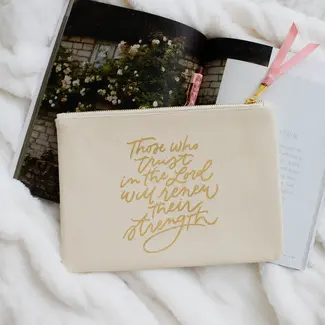 Those who
trust
in the Lord
will renew
their
strength